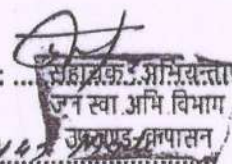 सहायक अभियन्ता
जन स्वा अभि विभाग
उपखण्ड कपासन